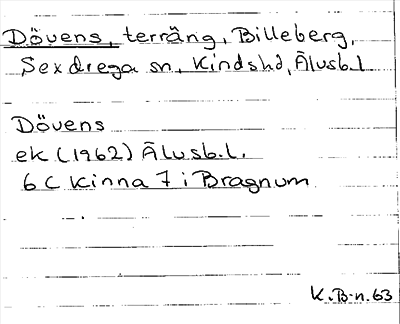 Dövens, terräng, Billeberg,
Sexdrega sn, Kindshd, Älvsb.l
Dövens
ek (1962) Älvsb.l.
6 C Kinna 7 i Bragnum
K.B-n.63